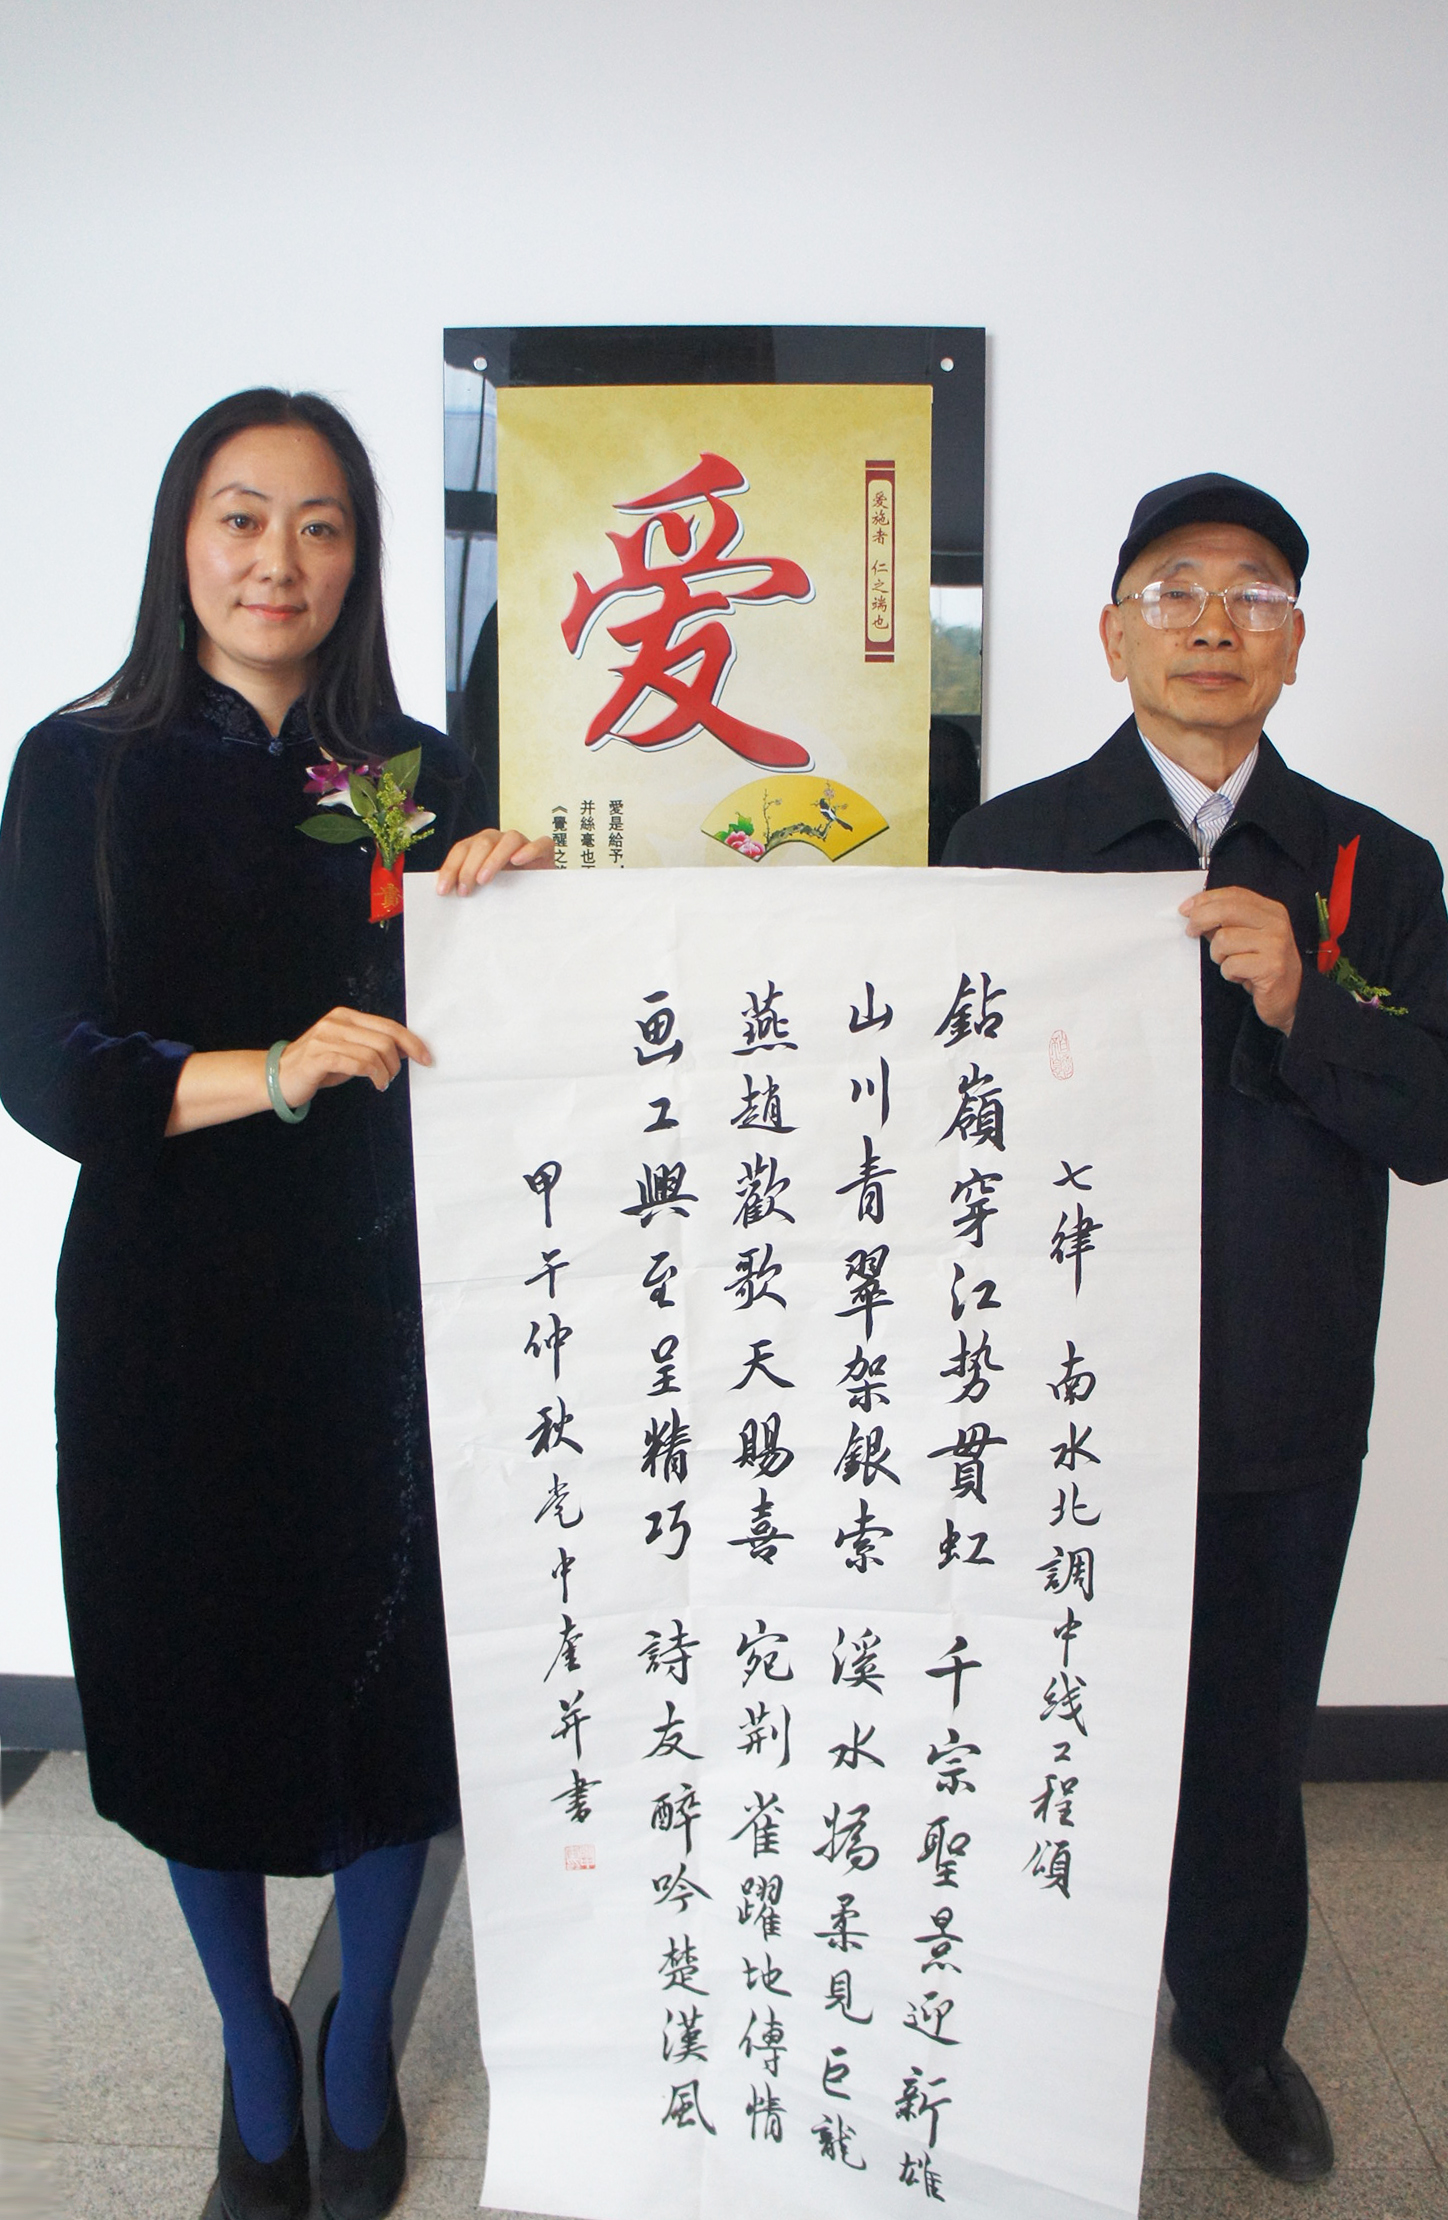 爱
爱施者 仁之端也
愛是給予，
并絲毫也
《覺醒之
七律 南水北調中线工程頌
鉆嶺穿江势貫虹 千宗聖景迎新雄
山川青翠架銀索 溪水嬌柔見巨龍
燕趙歡歌天賜喜 宛荆雀躍地傳情
画工興至呈精巧 詩友醉吟楚漢風
甲午仲秋 中奎并書